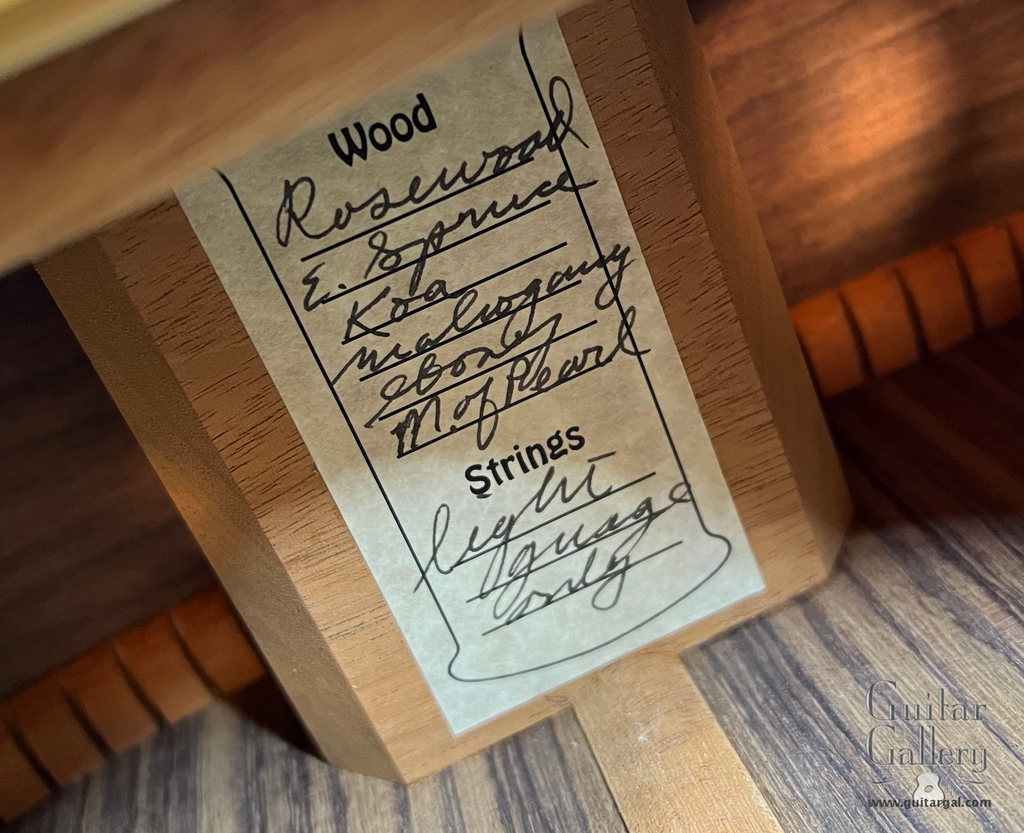 Wood
Rosewood
E. Spruce
Koa
mahogany
ebony
M. of Pearl
Strings
light
guage
only
Guitar
Gallery
www.guitargal.com